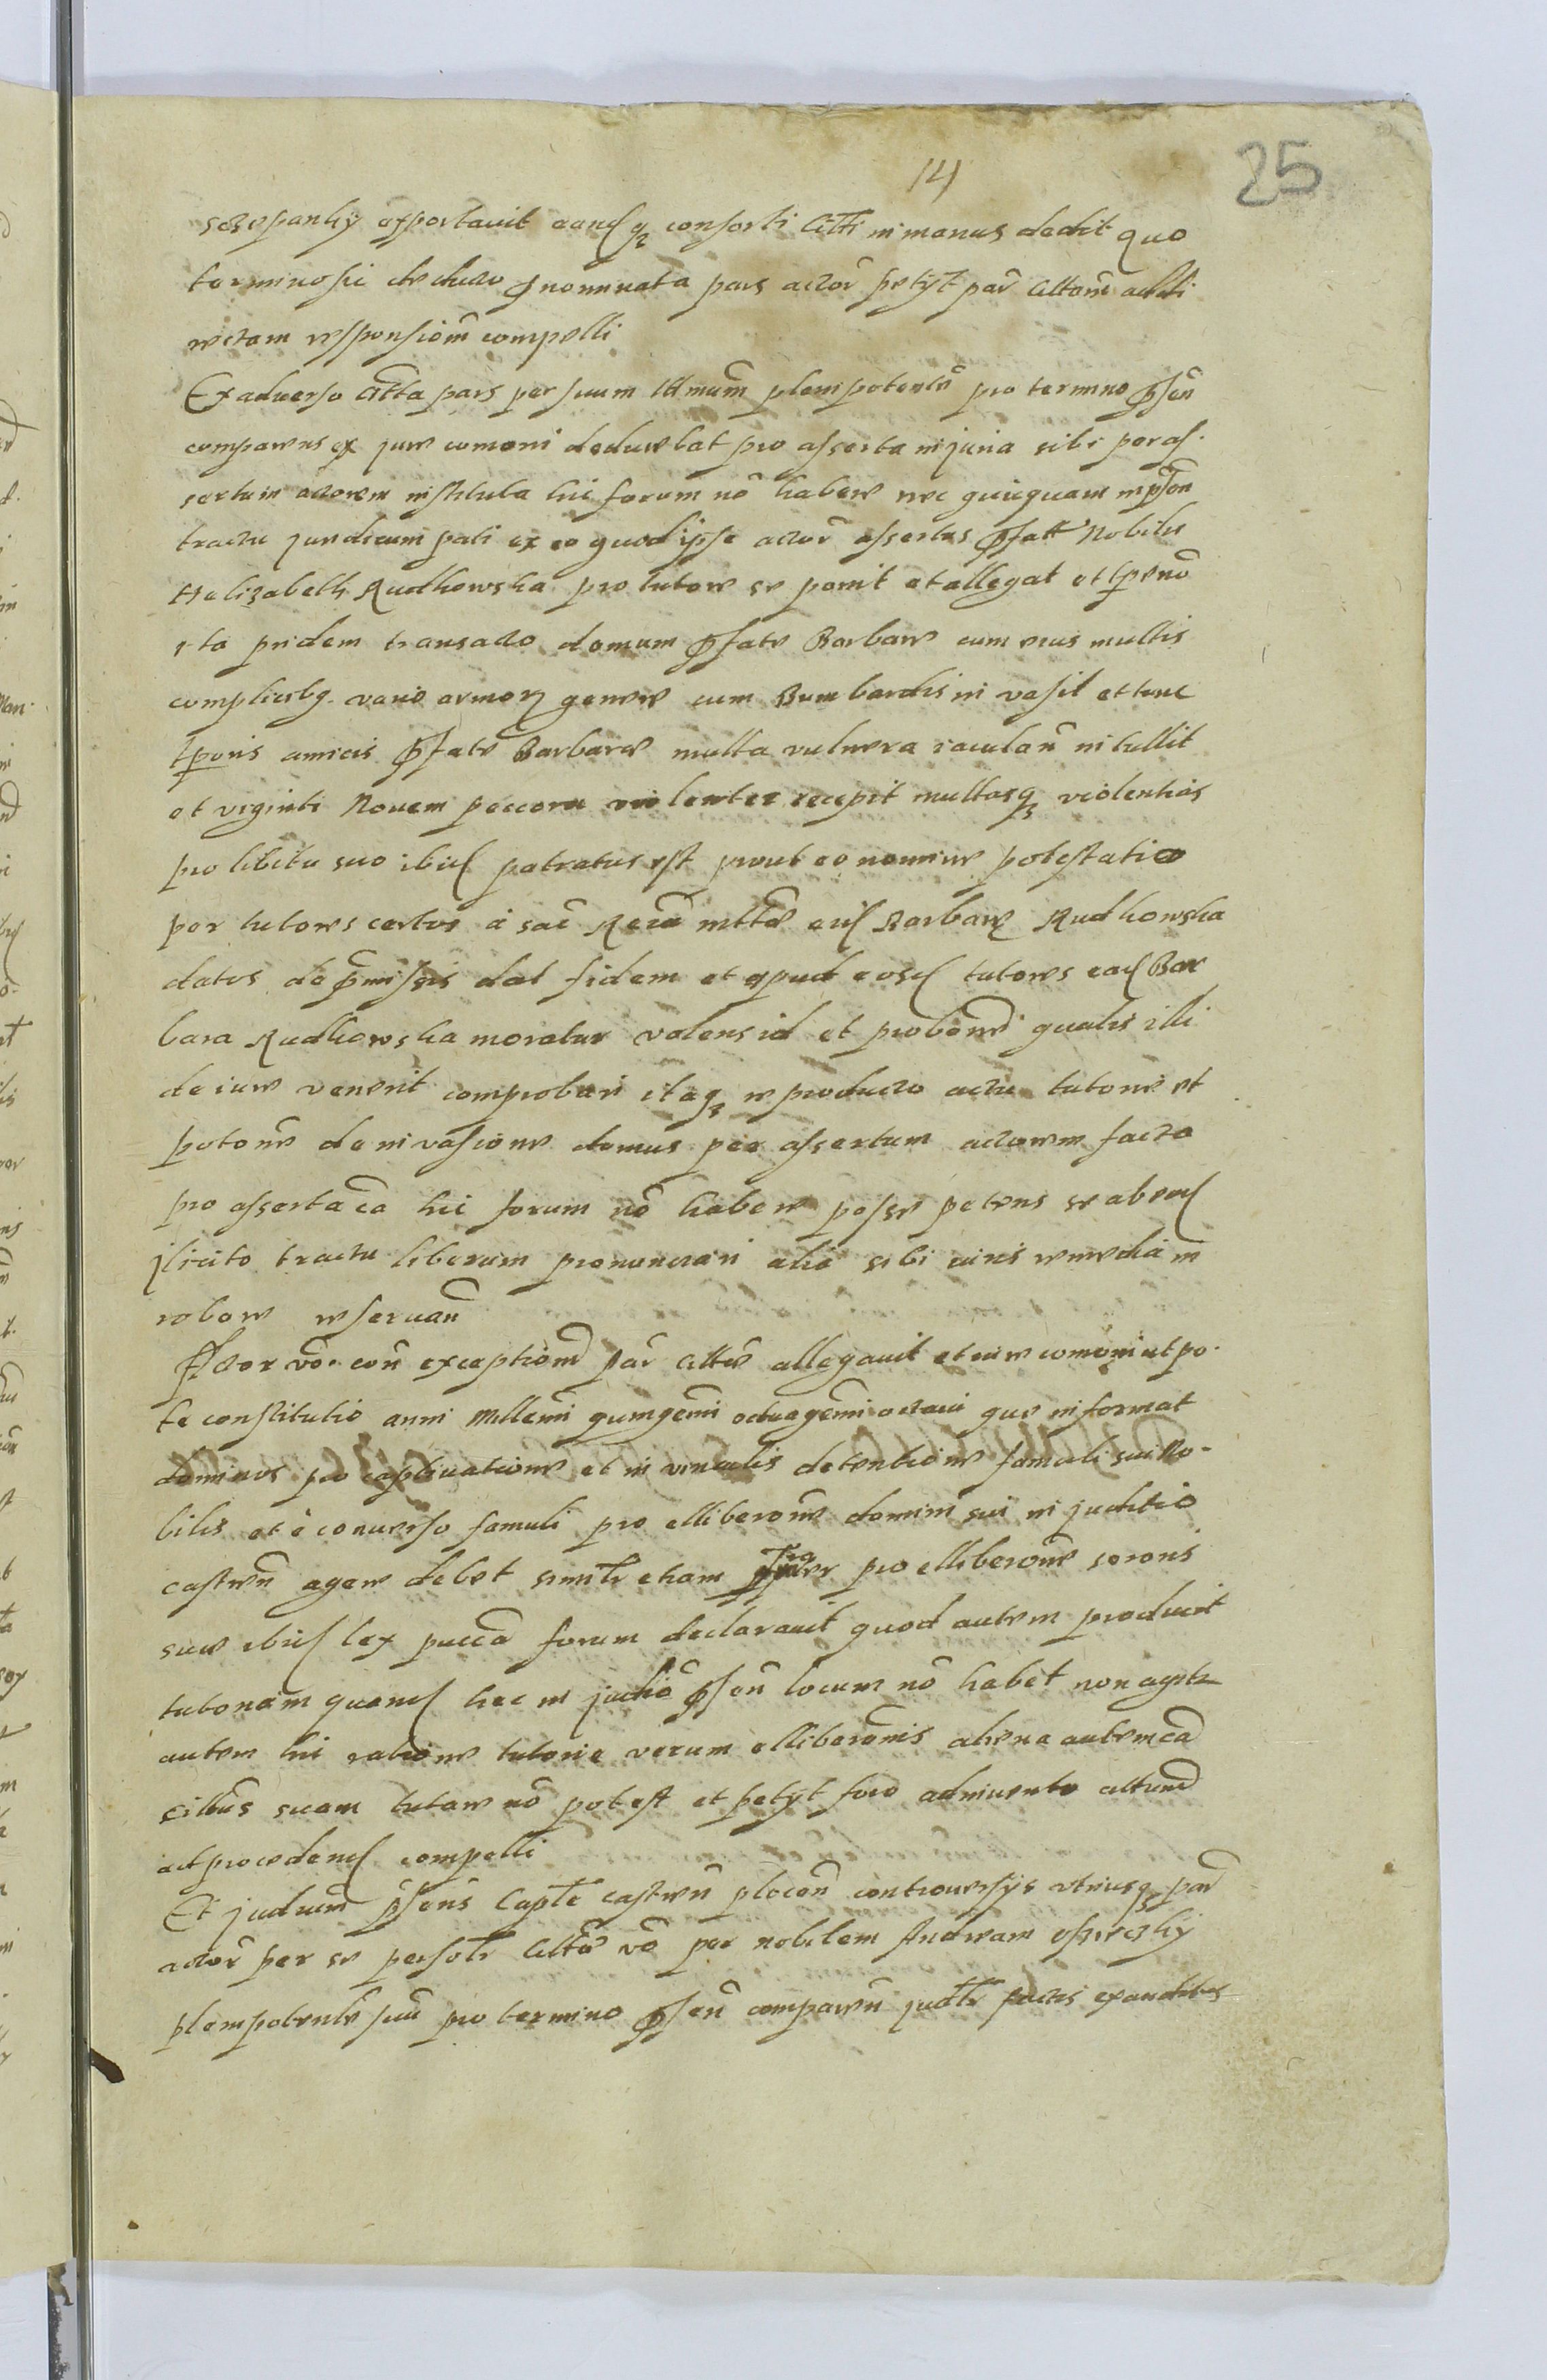 14
25
asportavit eandq3 consorti Citti in manus dedit quo
termino sic deducto pnominata pars actor petÿt par Cittam addi
rectam responsionem compelli
Ex adverso Citta pars per suum ltimum plenipotentem pro termino psen
comparens ex jure comoni deducebat pro asserta injuria sibi per as-
sertum actorem instituta hic forum no habere nec quicquam in psen
tractu juridicum pati ex eo quod ipse actor assertus pfatt Nobilis
Helizabeth Rudkowska pro tutore se ponit et allegat et
ita pridem transacto domum pfate Barbare cum eius multis
complicibq vario armor genere cum Bumbardis in vasit et tunc
tporis amicis pfate Barbare multa vulnera iaculan intullit
et viginti Novem peccora violenter recepit multasq3 violentias
pro libitu suo ibid patratus est prout eo nomine potestatio
per tutores certos à sac Regia mtte eid Barbare Rudkowska
datos de pmissis dat fidem et apud eosd tutores ead Bar
bara Rudkowska moratur volens id et probare qualis illi
de iure venerit comprobari itaq3 reproducto actu tutorie et
potone de in vasione domus per assertum actorem facta
pro asserta ca hic forum no habere posse petens se ab eod
jlicito tractu liberum pronunciari alia sibi iuris remedia in
robore reservan
Actor vo con exceptionem par Citte allegavit et iure comoni ut po-
te constitutio anni Millemi quingemi octuagemi octavi que informat
dominos pro captivatione et in vinculis detentione famuli sui No-
bilis et è converso famuli pro elliberone domini sui in juditio
castren agere debet simitr etiam frater pro elliberone sororis
sue ibid lex pucca forum declaravit quod autem producit
tutoriam quand hec in judio psen locum no habet non agitr
autem hic ratione tutorie verum elliberonis aliena autem ca
cittus suam tutare no potest et petÿt foro adinvento cittum
ad procedend compelli
Et judium psens Capte castren plocen controversÿs utriusq3 par
actor per se persotr Citta vo per nobilem Andream
plenipotente suu pro termino psen comparen judtr factis exauditis